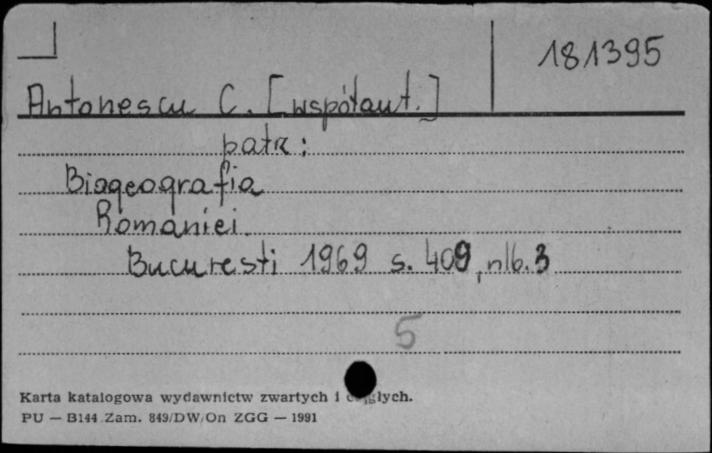 181395
Antonescu C. [współaut.]
patrz:
Biogeografia
Romaniei.
Bucuresti 1969 s. 409, nlb. 3
5
Karta katalogowa wydawnictw zwartych i ciągłych.
PU — B144 Zam. 849/DW/On ZGG — 1991